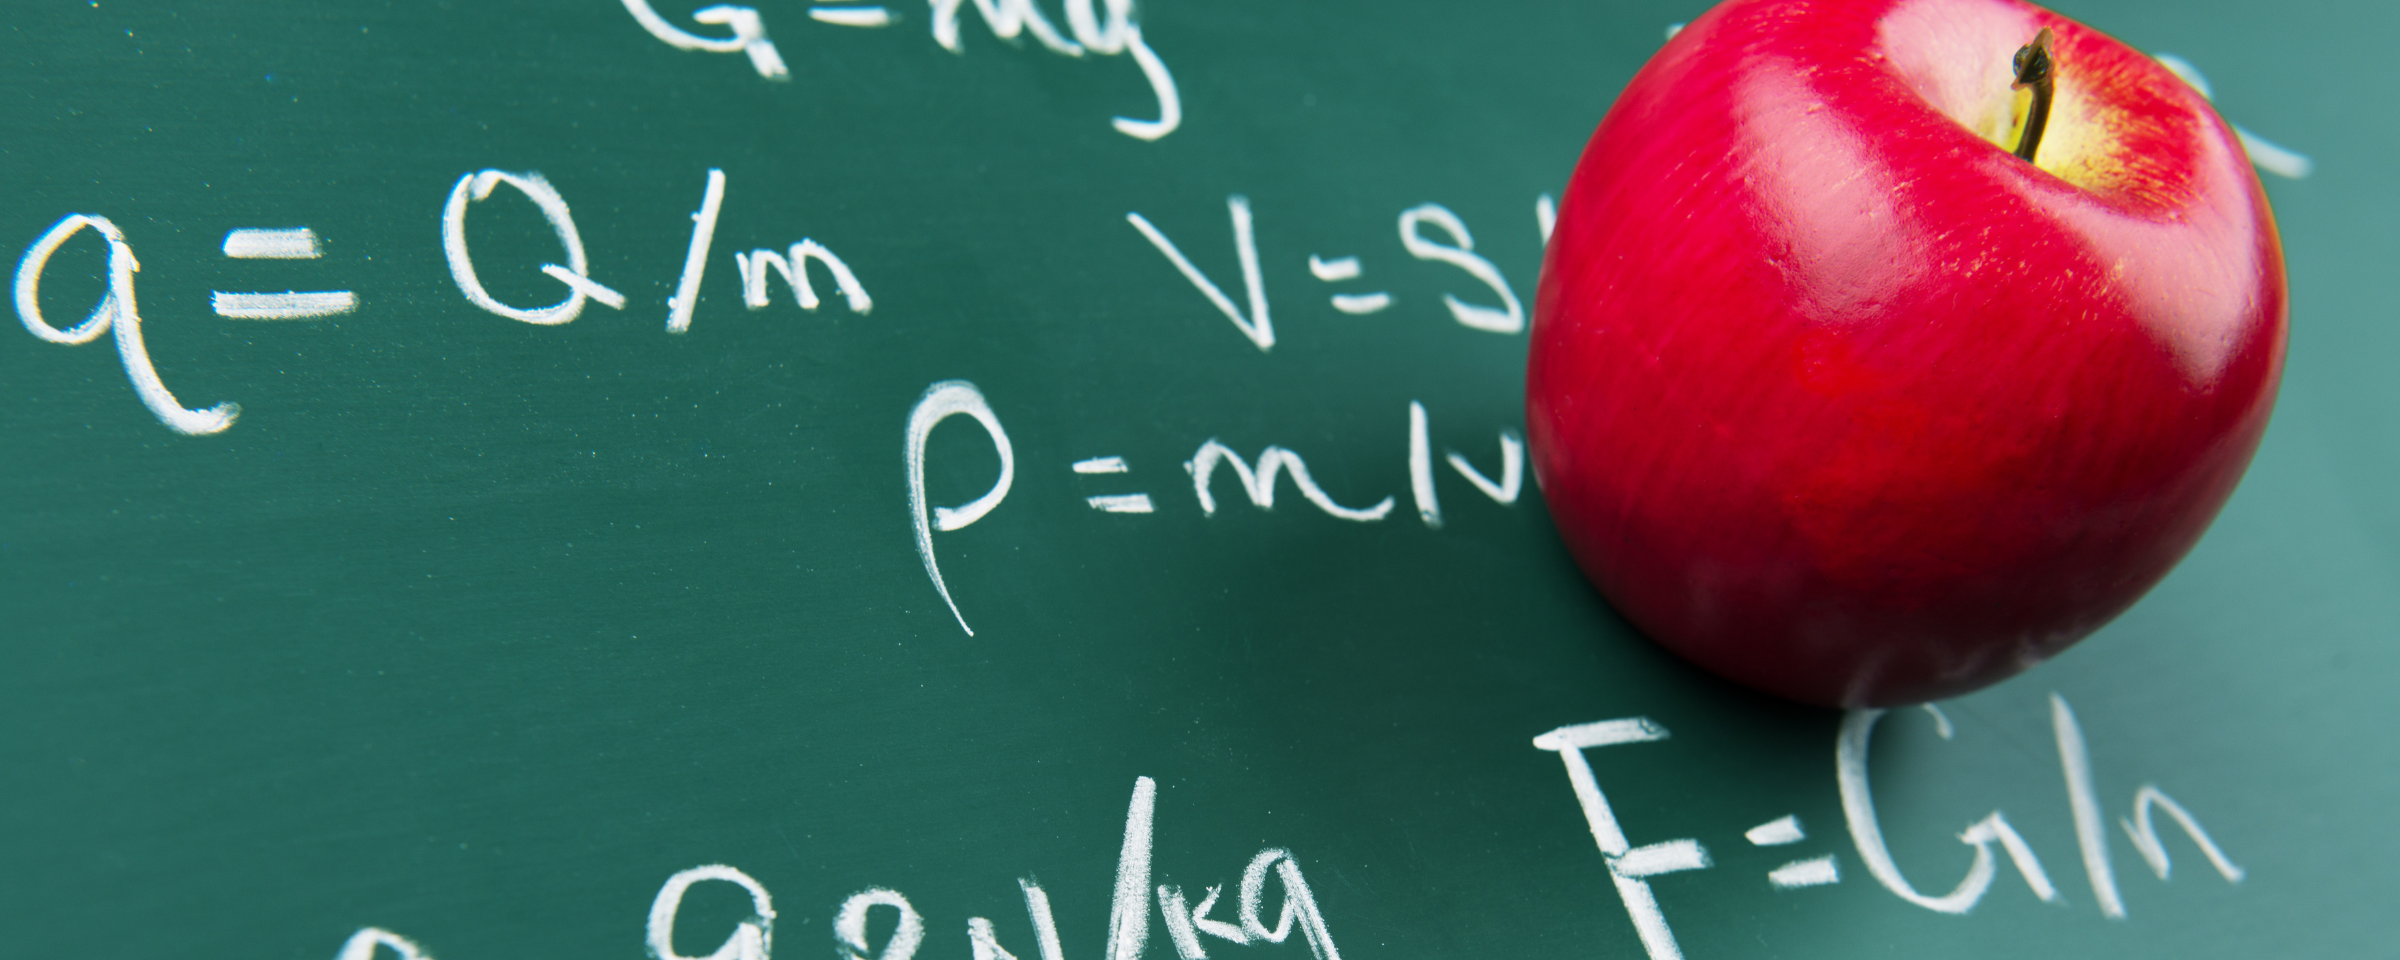 G=mg
q=Q/m
V=S
ρ=m/v
9.8N/kg
F=G/n